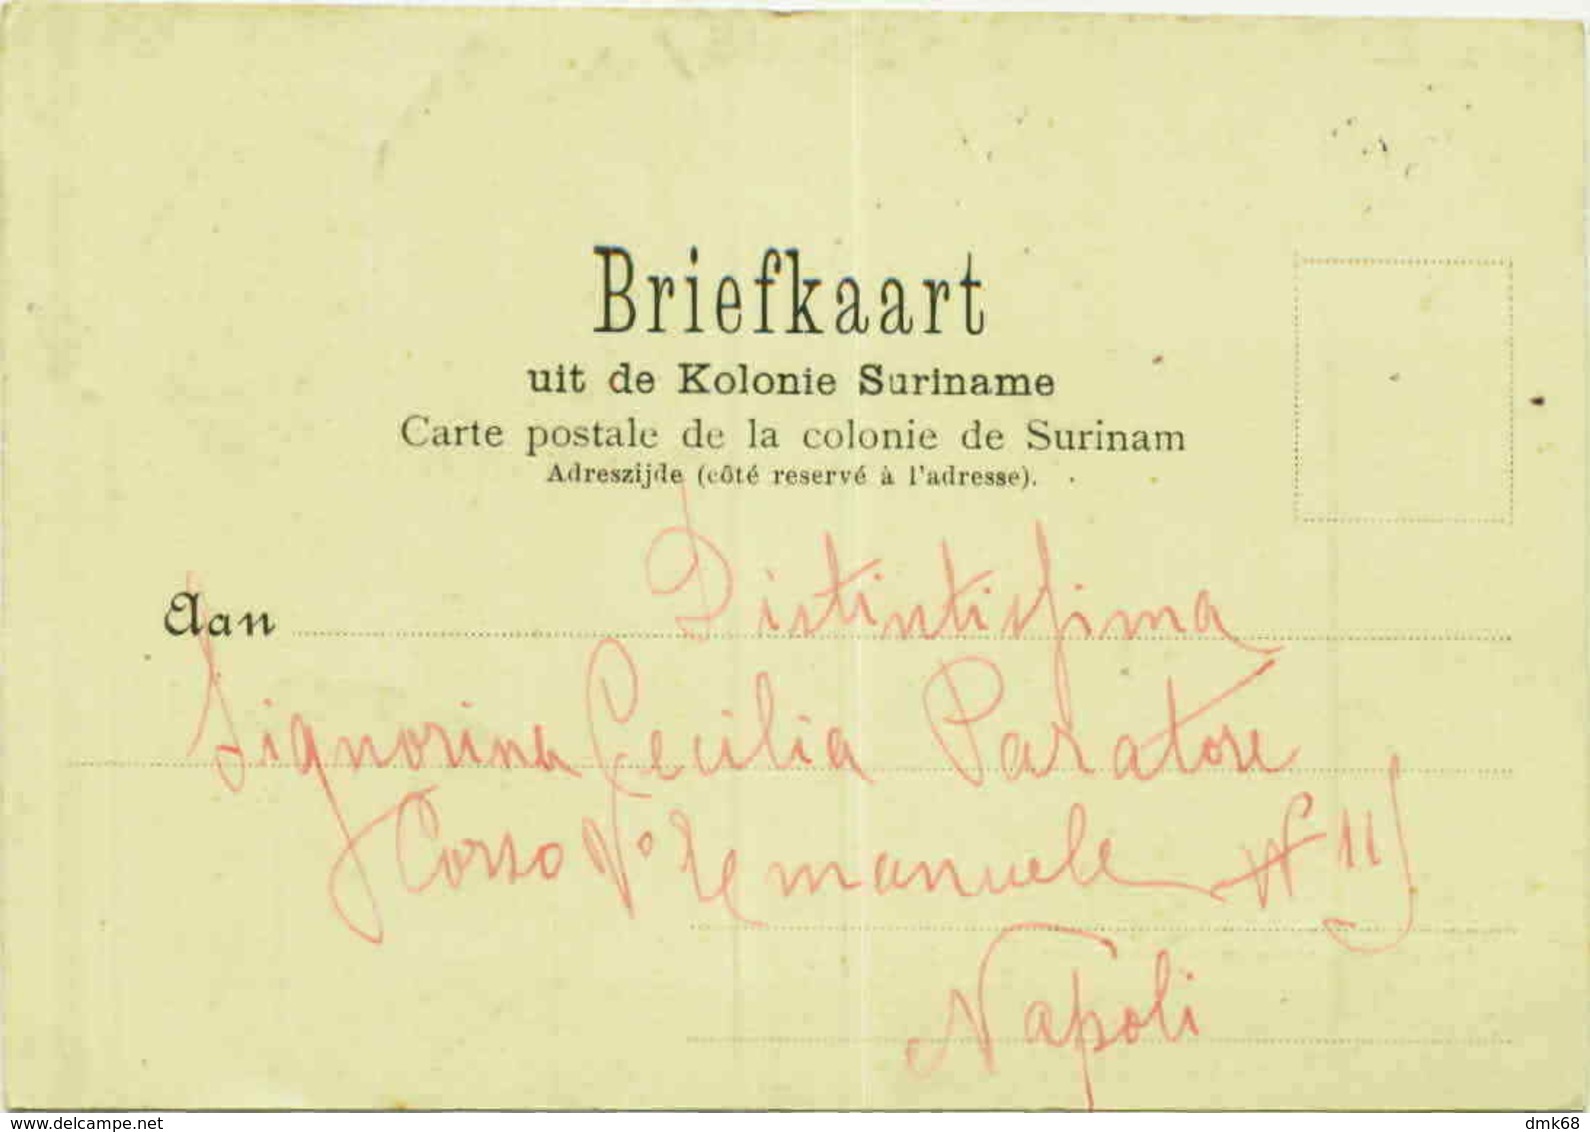 Briefkaart
uit de Kolonie Suriname
Carte postale de la colonie de Surinam
Adreszijde (côté reservé à l'adresse).
Distintissima
Aan
Signorina Cecilia Paratore
Corso Vo Emanuele No 115
Napoli
www.delcampe.net
dmk68